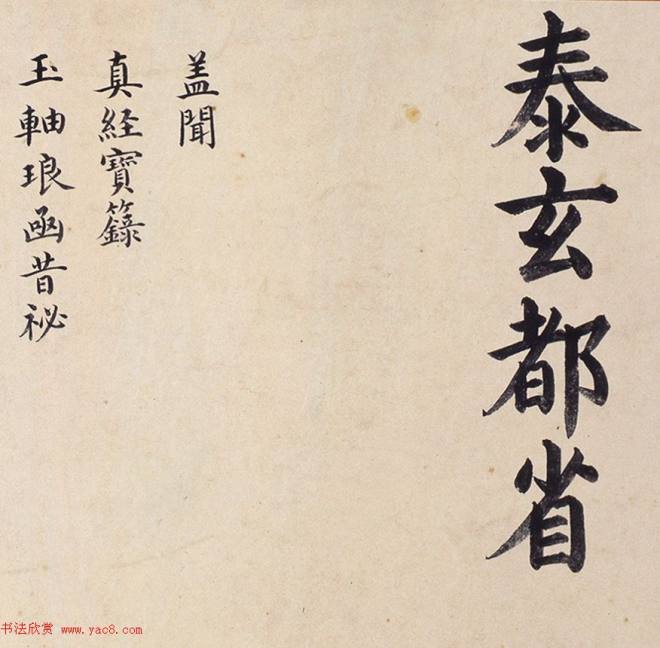 泰玄都省
盖聞
真経寳籙
玉軸琅函昔祕
书法欣赏 www.yac8.com